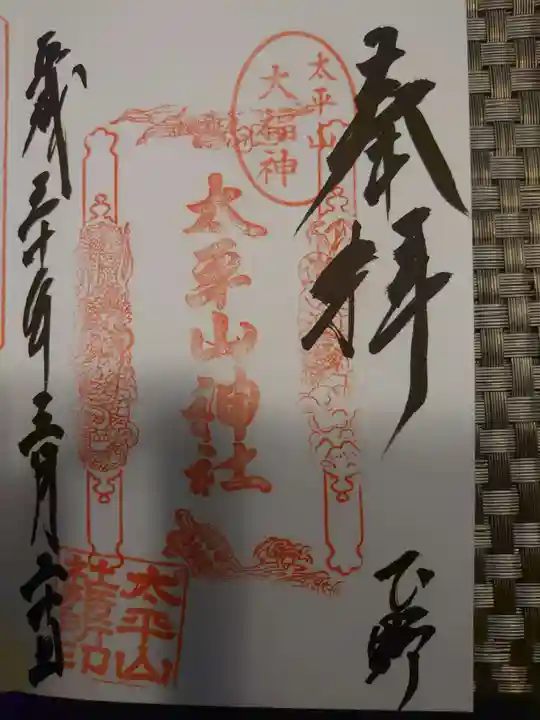 奉拝
下野
太平山
大福神
太平山神社
太平山
社璽印
平成三十年三月二十五日